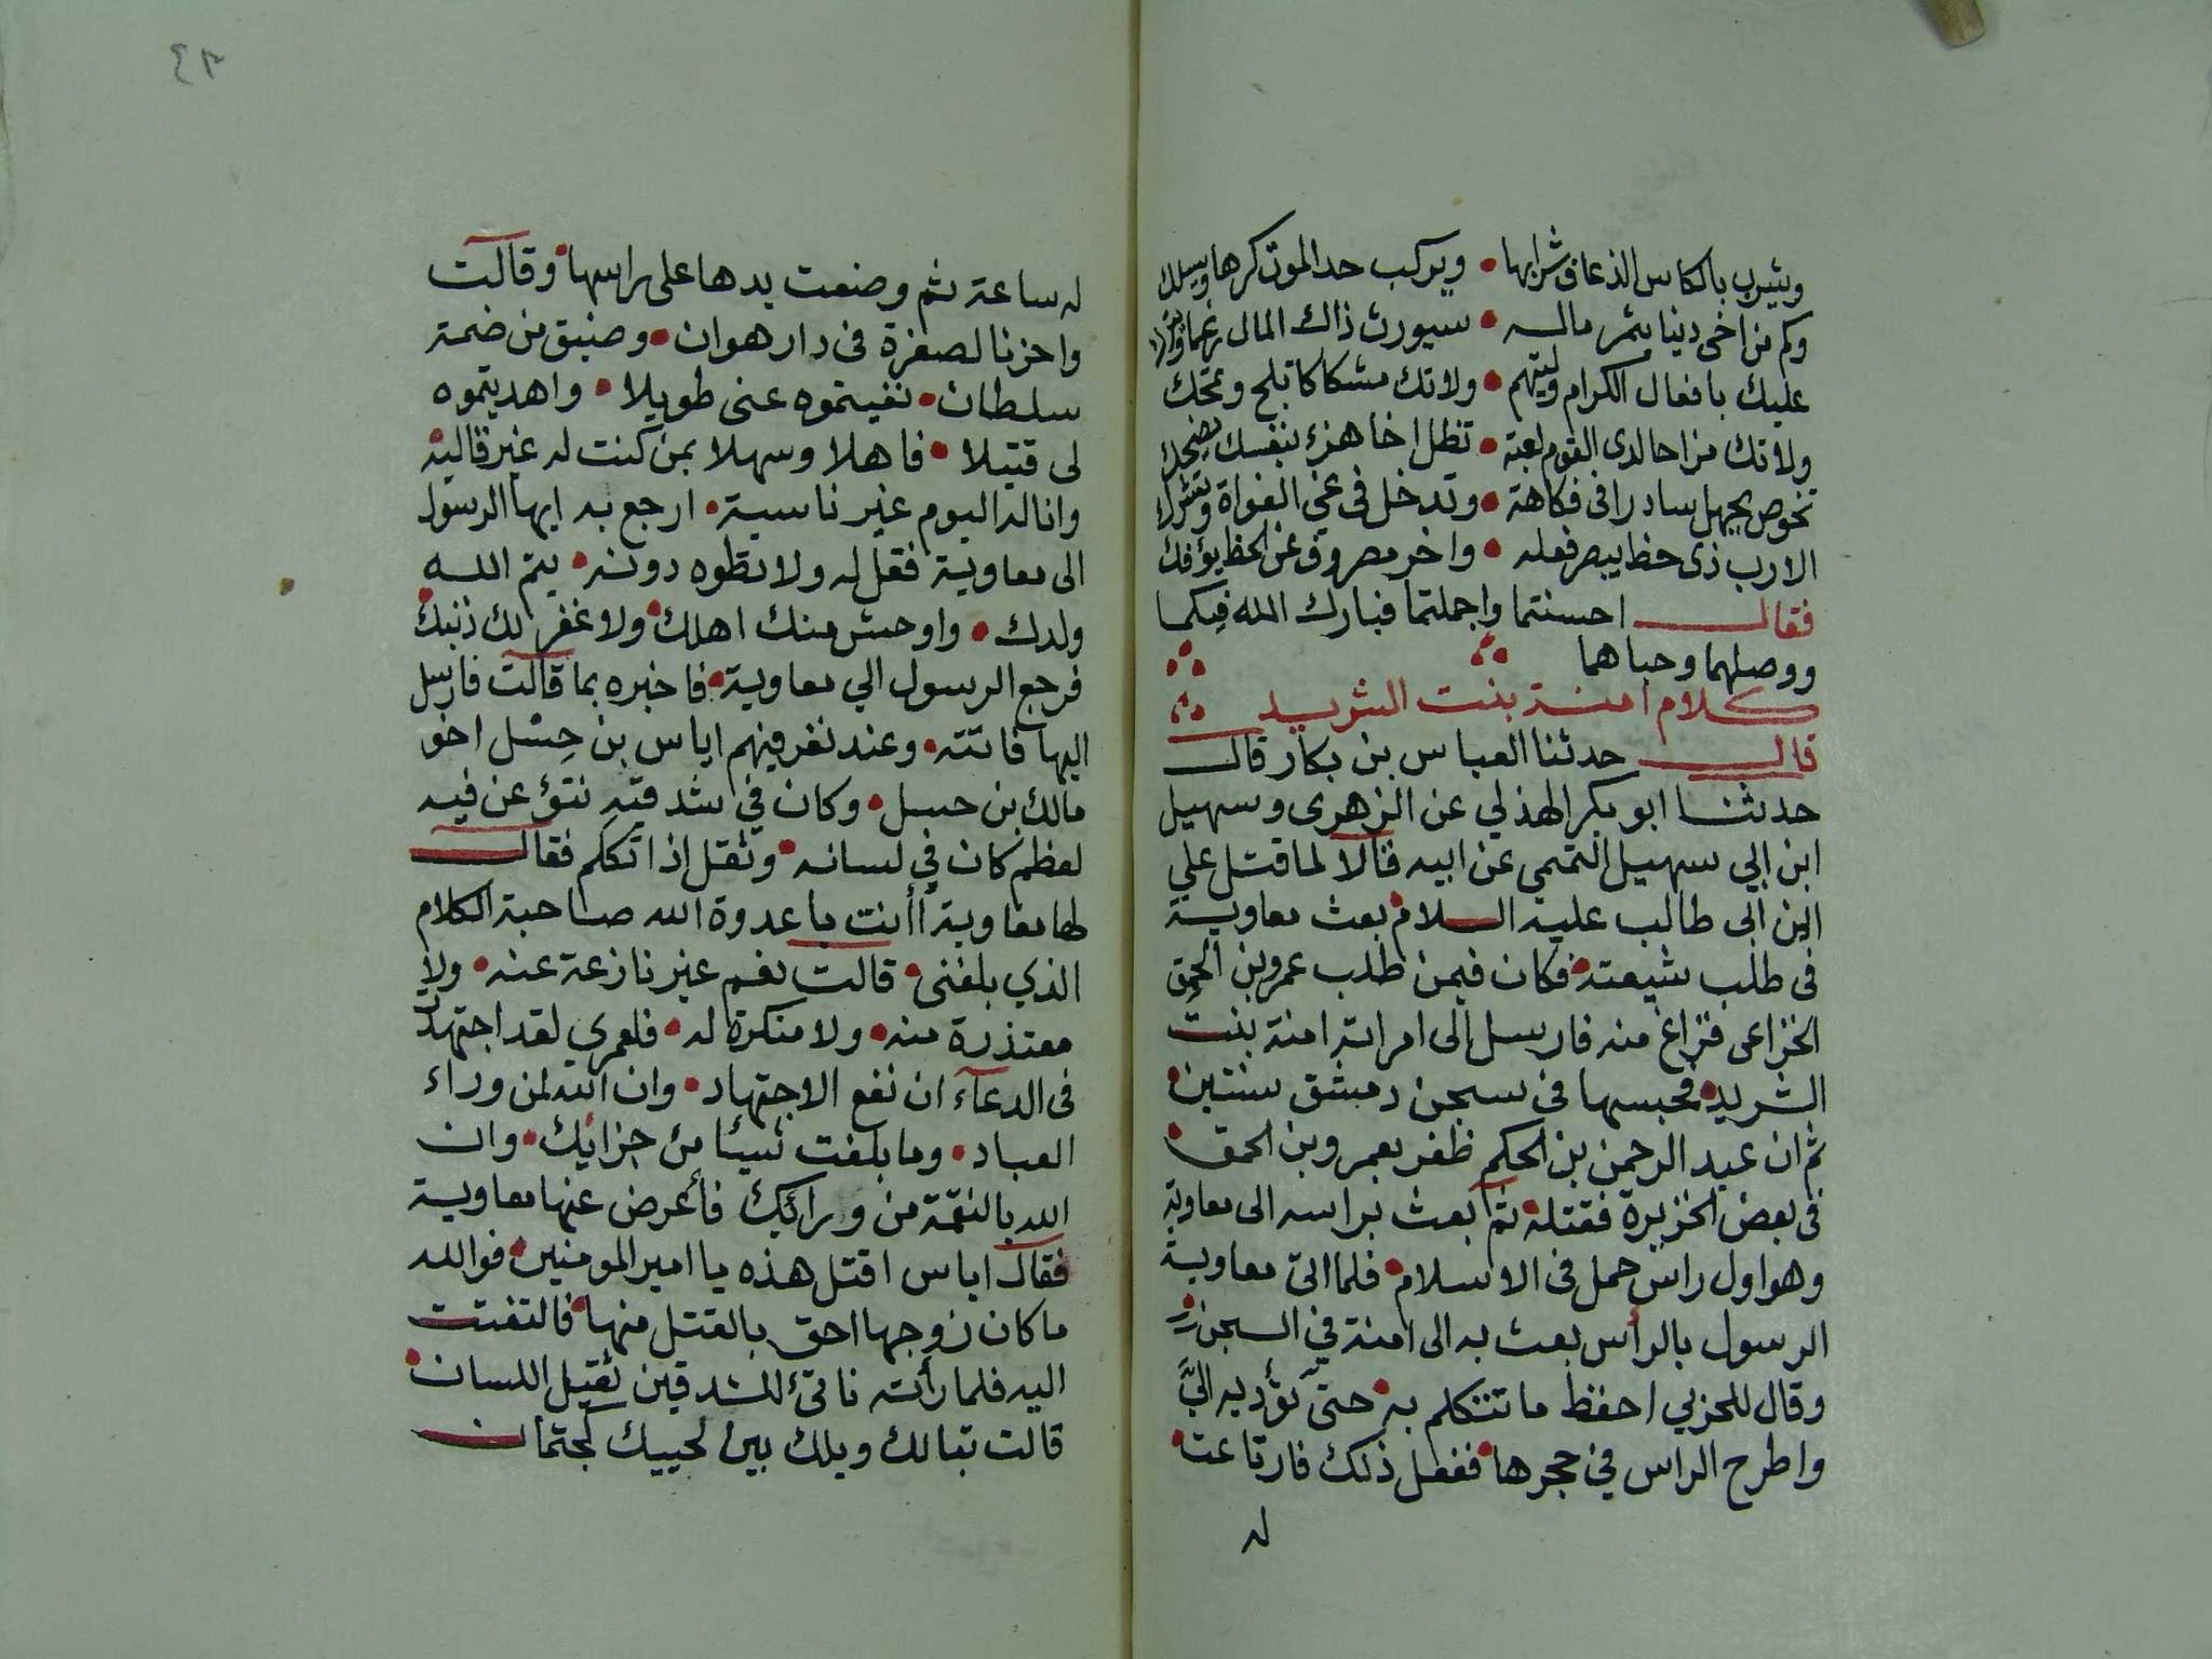 ويشرب بالكاس الذعاف شرابها • ويركب حد الموت كرها ويسلك
وكم من اخي دنيا يثمر ماله • سيورث ذاك المال رغما
عليك بافعال الكرام ولينهم • ولا تك مشكاكا تلح وتمحك
ولا تك مزاحا لدى القوم لعبة • تظل اخا هزء بنفسك يضحك
تخوض بجهل سادرا في فكاهة • وتدخل في غي الغواة وتشرك
الا رب ذي حظ يبصر فعله • واخر مصروف عن الحظ يؤفك
فقال احسنتما واجملتما فبارك الله فيكما
ووصلهما وحباهما
كلام امنة بنت الشريد
قال حدثنا العباس بن بكار قال
حدثنا ابو بكر الهذلي عن الزهري وسهيل
ابن ابي سهيل التميمي عن ابيه قالا لما قتل علي
ابن ابي طالب عليه السلام • بعث معاوية
في طلب شيعته • فكان فيمن طلب عمرو بن الحمق
الخزاعي فزاغ منه فارسل الى امراته امنة بنت
الشريد • فحبسها في سجن دمشق سنتين •
ثم ان عبد الرحمن بن الحكم ظفر بعمرو بن الحمق •
في بعض الجزيرة فقتله • ثم بعث براسه الى معاوية
وهو اول راس حمل في الاسلام • فلما اتى معاوية
الرسول بالرأس بعث به الى امنة في السجن •
وقال للحرسي احفظ ما تتكلم به • حتى تؤديه اليّ
واطرح الراس في حجرها • ففعل ذلك فارتاعت •
له
٤٢
له ساعة ثم وضعت يدها على راسها • وقالت
واحزنا لصغرة في دار هوان • وضيق من ضمة
سلطان • نفيتموه عني طويلا • واهديتموه
لي قتيلا • فاهلا وسهلا بمن كنت له غير قالية •
وانا له اليوم غير ناسية • ارجع به ايها الرسول
الى معاوية فقل له ولا تطوه دونه • يتم الله
ولدك • واوحش منك اهلك • ولا غفر لك ذنبك •
فرجع الرسول الي معاوية • فاخبره بما قالت فارسل
اليها فاتته • وعند نفر فيهم اياس بن حِسْل اخو
مالك بن حسل • وكان في شدقيه نتؤ عن فيه
لعظم كان في لسانه • وثقل اذا تكلم فقال
لها معاوية أأنت يا عدوة الله صاحبة الكلام
الذي بلغني • قالت نعم غير نازعة عنه • ولا
معتذرة منه • ولا منكرة له • فلعمري لقد اجتهدت
في الدعآء ان نفع الاجتهاد • وان الله لمن وراء
العباد • وما بلغت شيئا من جزائك • وان
الله بالنقمة من ورائك فأعرض عنها معاوية
فقال اياس اقتل هذه يا امير المومنين • فوالله
ما كان زوجها احق بالقتل منها • فالتفتت
اليه فلما رأته ناتئ الشدقين ثقيل اللسان •
قالت تبا لك ويلك بين لحييك كجثمان